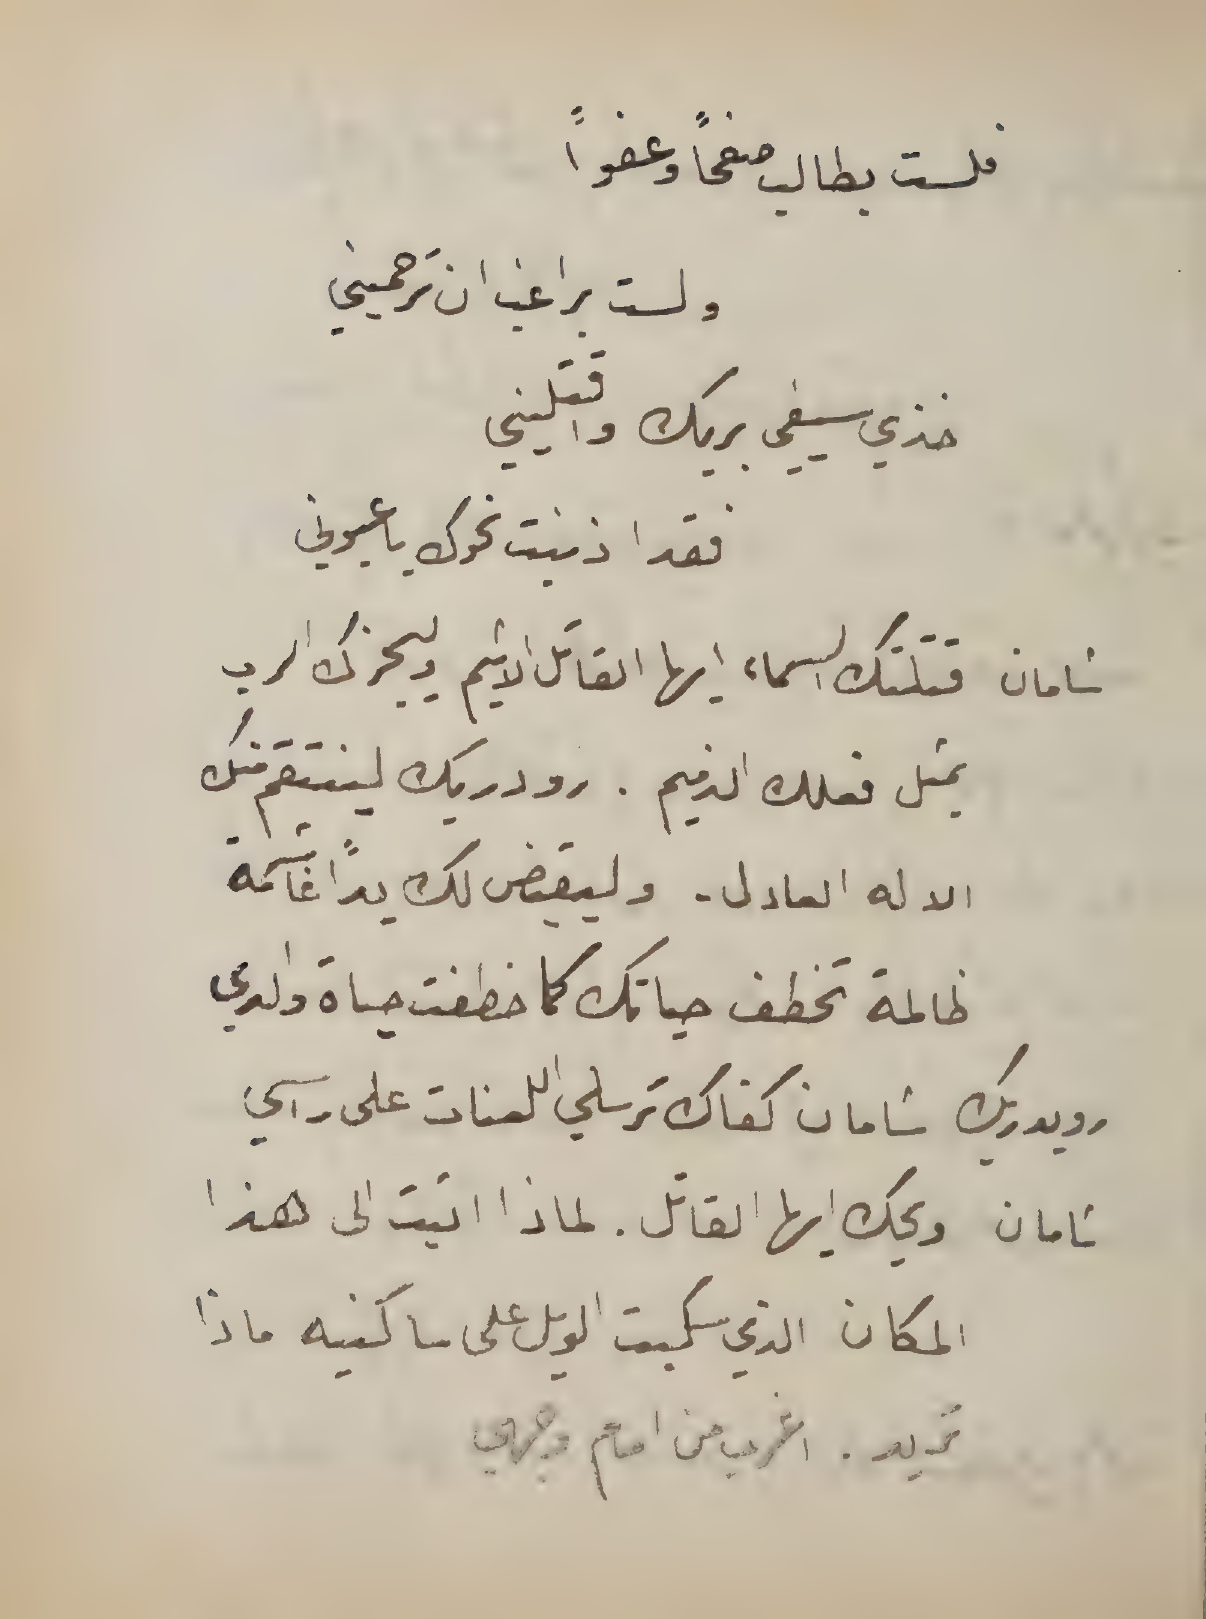 فلست بطالب صفحاً وعفواً
ولست براغب ان ترحميني
خذي سيفي بريك واقتليني
فقد اذنبت نحوك يا عيوني
شامان قتلتك السماء ايها القاتل الاثيم وليجزك الرب
بمثل فعلك الذميم . رودريك لينتقم منك
الاله العادل . وليقيض لك يداً غاشمة
ظالمة تخطف حياتك كما خطفت حياة والدي
رويدريك شامان كفاك ترسلي اللعنات على رآسي
شامان ويحك ايها القاتل . لماذا اتيت الى هذا
المكان الذي سكبت الويل على ساكنيه ماذا
تريد . اغرب من امام وجهي